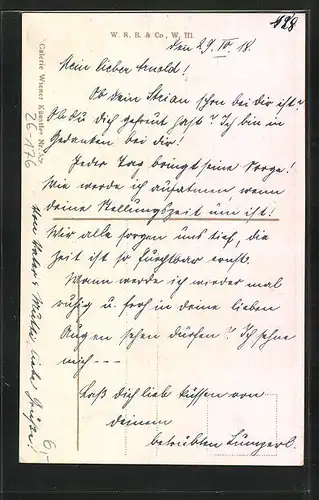 W. R. B. & Co., W. III.
128
Den 29. IV. 18.
Mein lieber Arnold!
Ob dein Steian schon bei dir ist?
Ob du dich gefreut hast? Ich bin in
Gedanken bei dir!
Jeder Tag bringt seine Sorge!
Wie werde ich aufatmen, wenn
deine Stellungszeit um ist!
Wir alle sorgen uns tief, die
Zeit ist so furchtbar ernst.
Wann werde ich wieder mal
ruhig u. froh in deine lieben
Augen sehen dürfen? Ich sehne
mich - - -
Laß dich lieb küssen von
deinem
betrübten Lumperl.
Galerie Wiener Künstler Nr.
26-176
Von Vater & Mutter liebe Grüße!
6,-